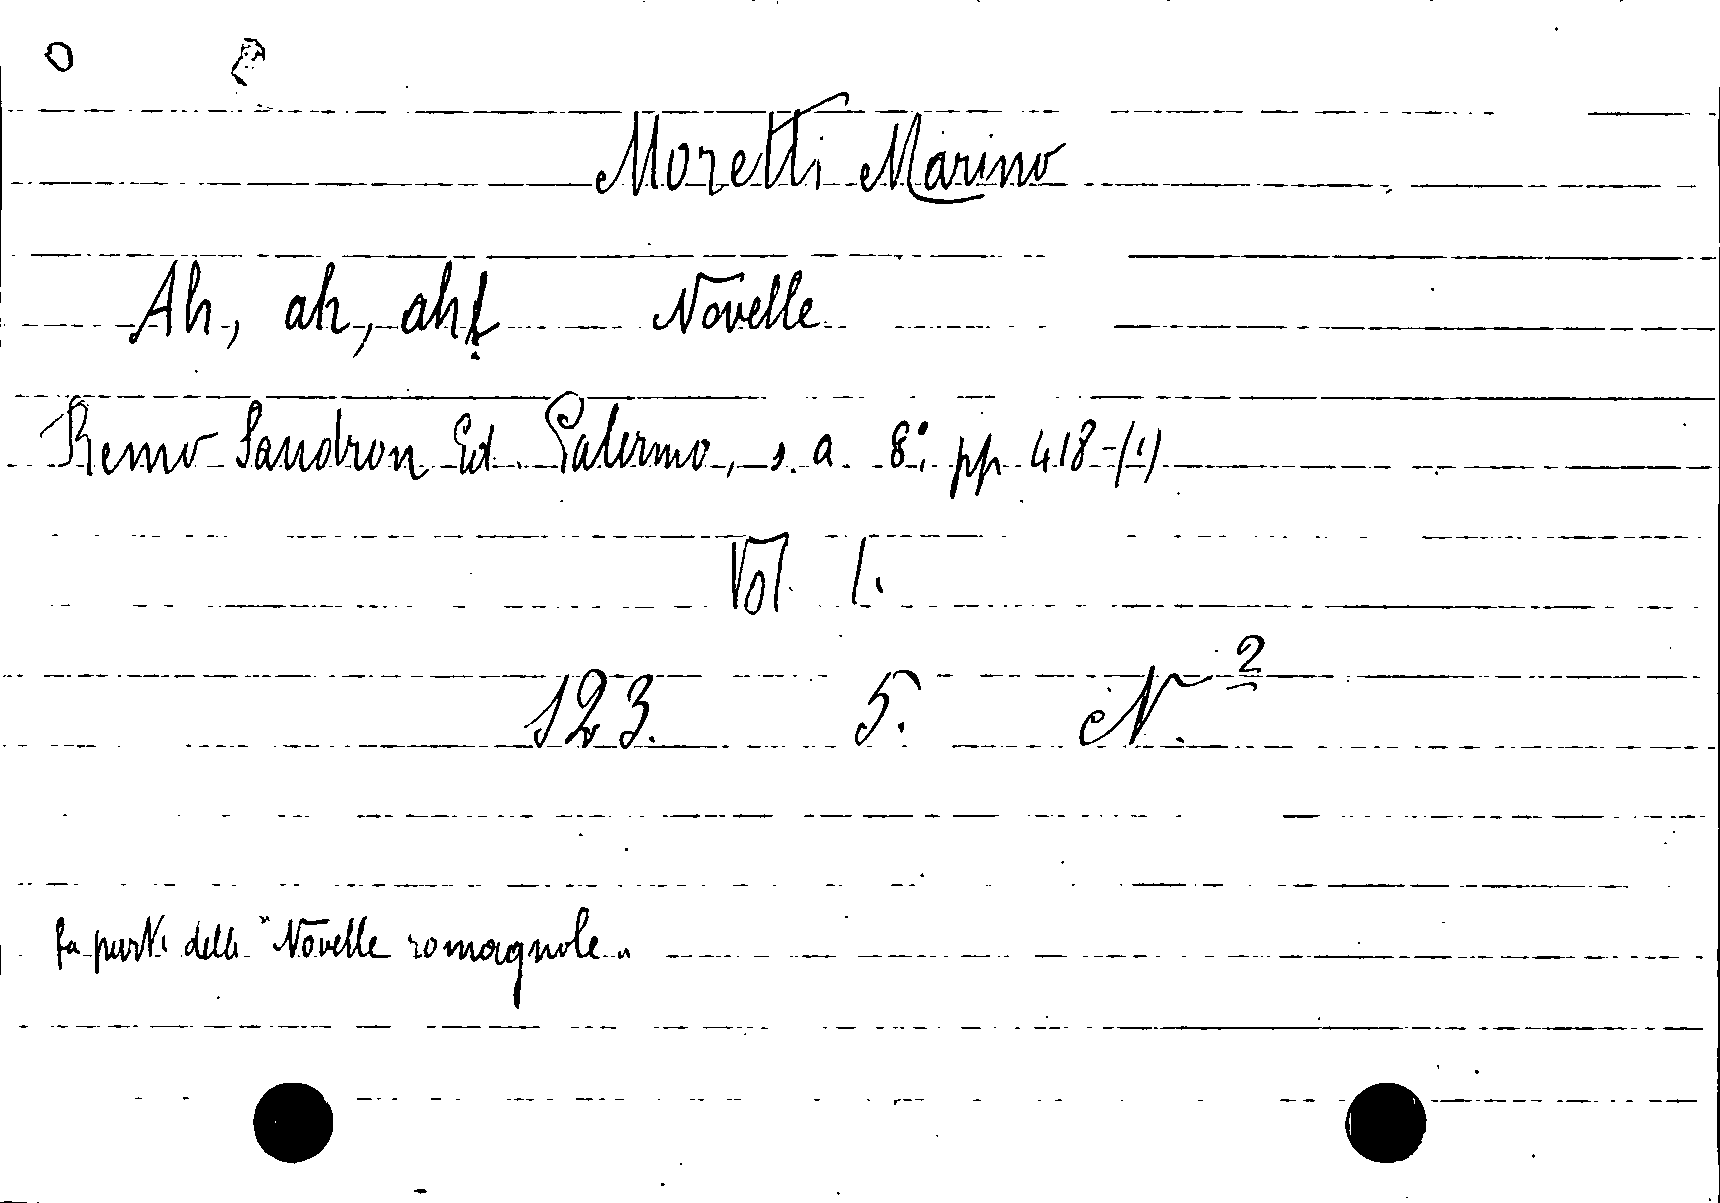 Moretti Marino
Ah, ah, ah! Novelle
Remo Sandron Ed. Palermo, s. a. 8º pp 418-(1)
Vol. I.
123. 5. N. 2
fa parte delle "Novelle romagnole"